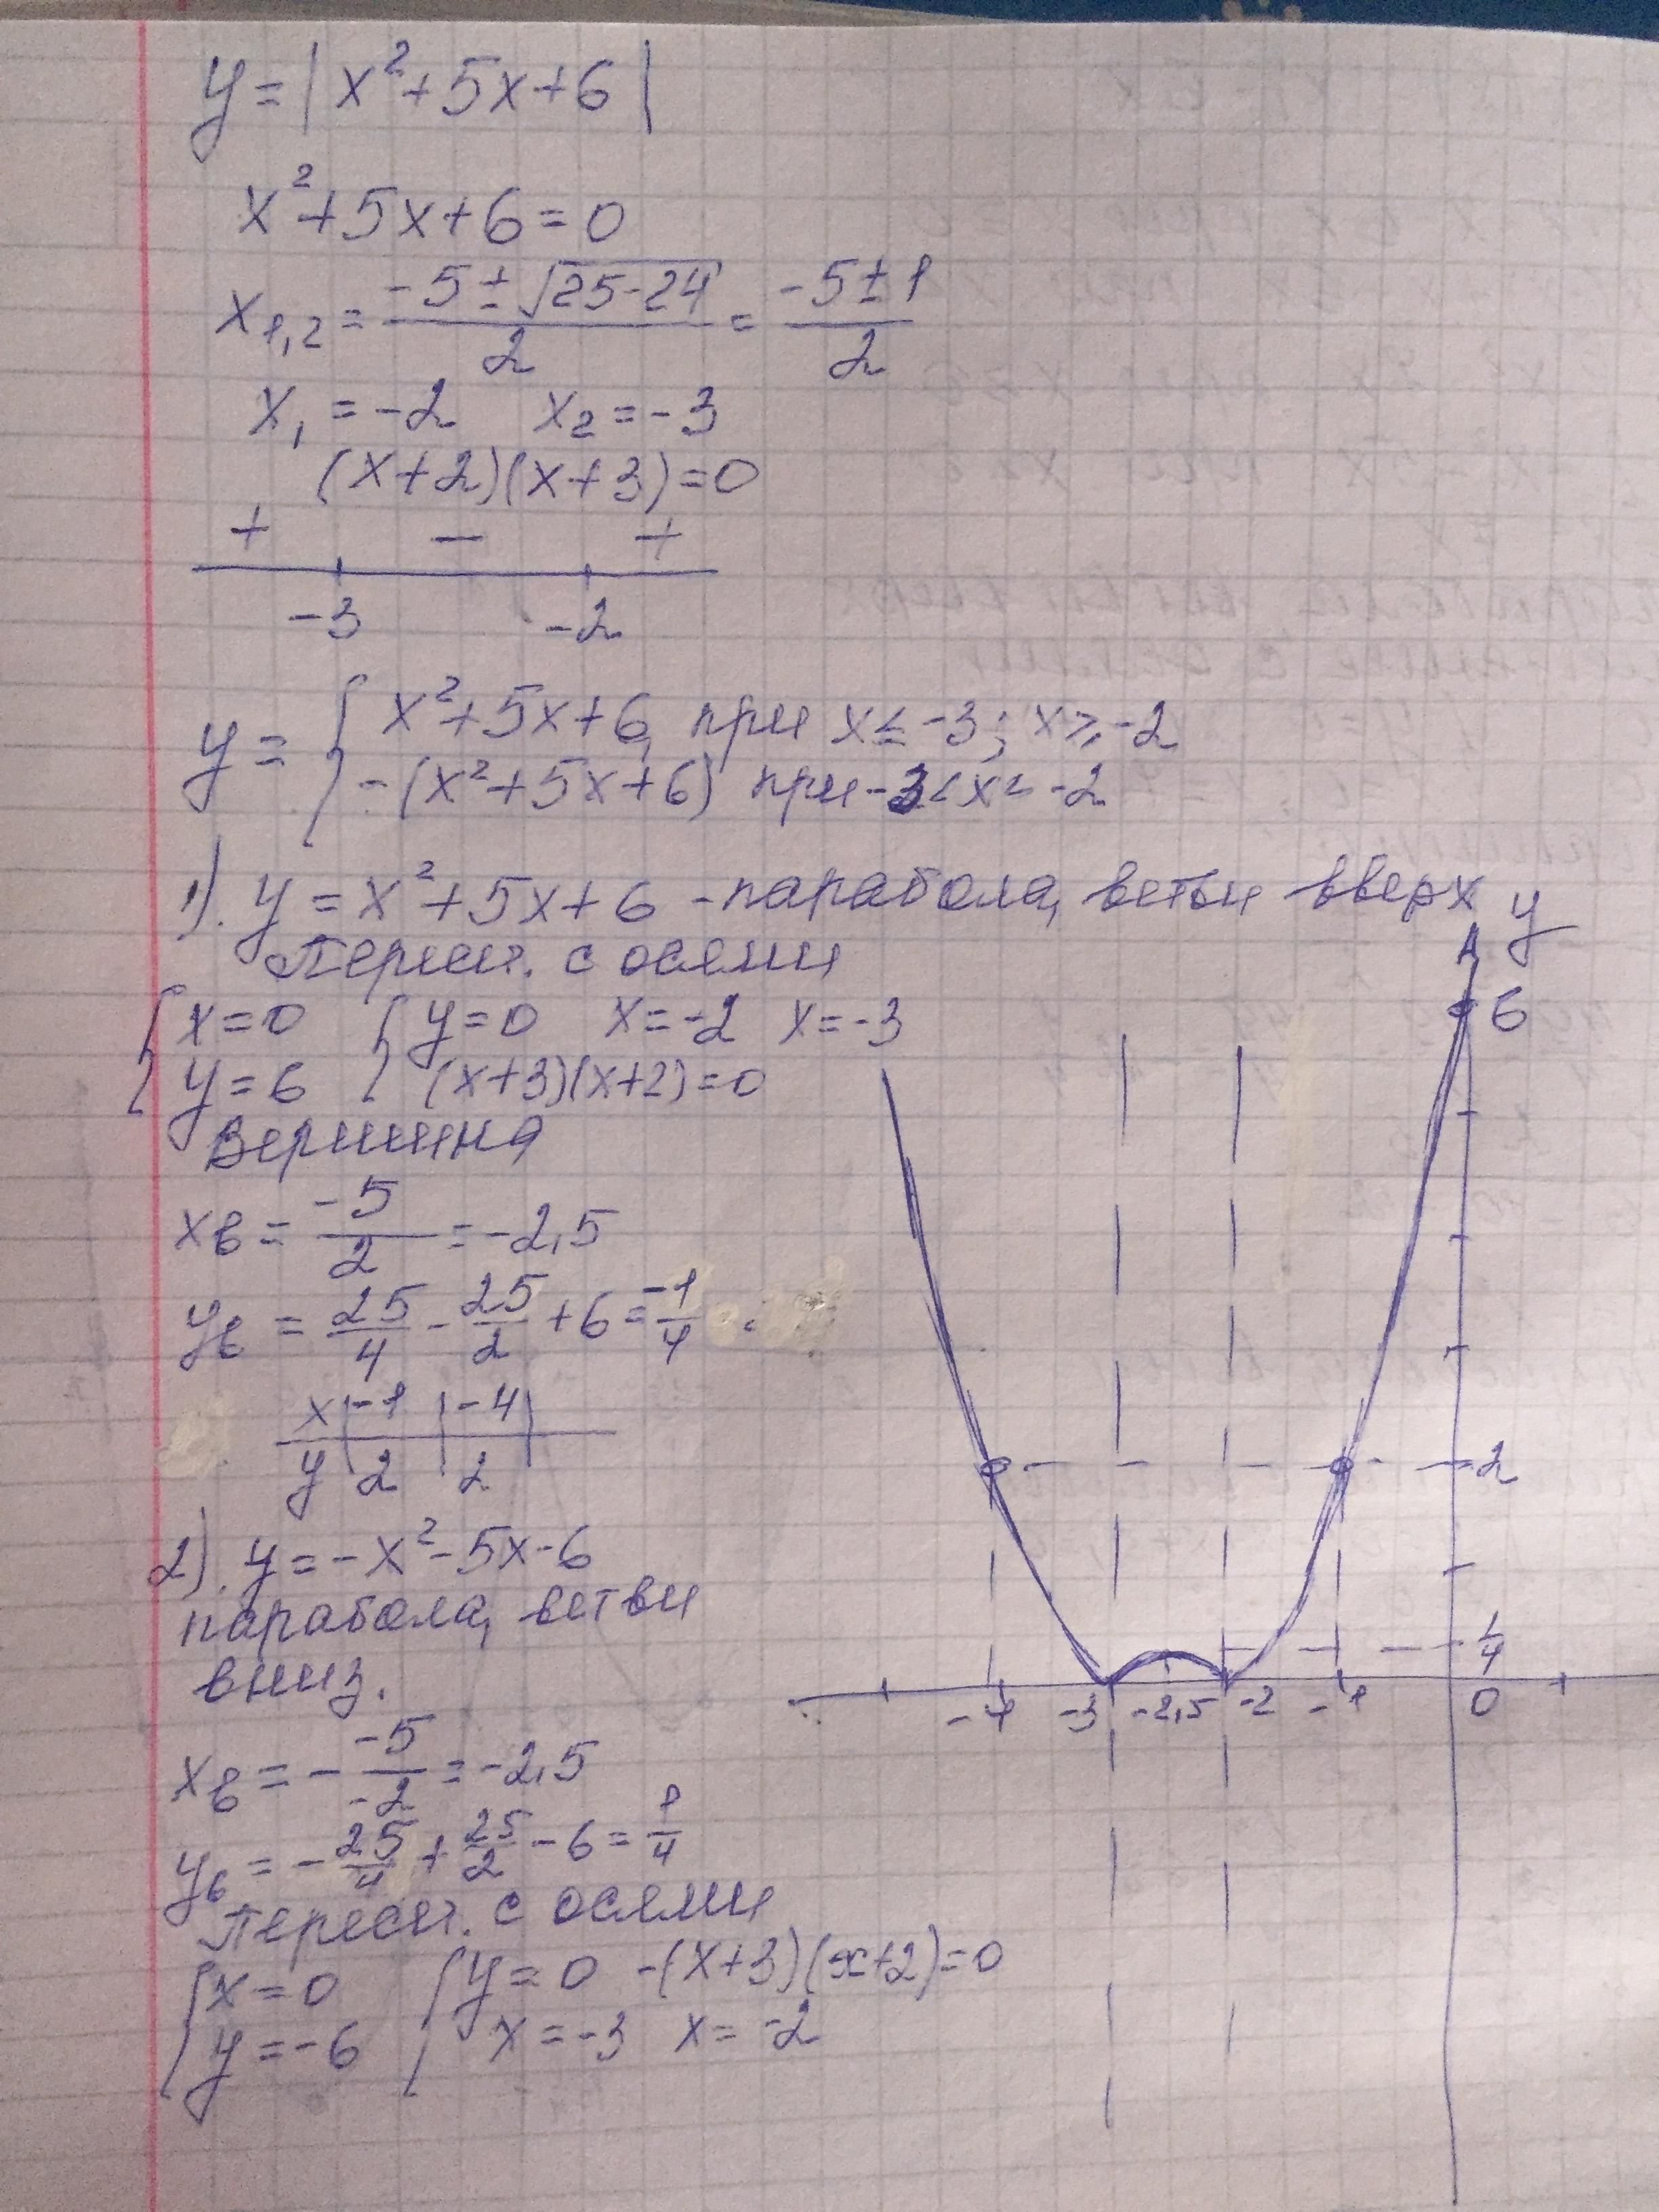 y = |x² + 5x + 6|
x² + 5x + 6 = 0
x₁,₂ = (-5 ± √(25-24))/2 = (-5 ± 1)/2
x₁ = -2 x₂ = -3
(x+2)(x+3) = 0
+ - +
-3 -2
y = { x² + 5x + 6, при x ≤ -3; x ≥ -2
-(x² + 5x + 6) при -3 < x < -2
1). y = x² + 5x + 6 - парабола, ветви вверх
Пересеч. с осями
{ x = 0 { y = 0 x = -2 x = -3
y = 6 (x+3)(x+2) = 0
Вершина
xв = -5/2 = -2,5
yв = 25/4 - 25/2 + 6 = -1/4
x | -1 | -4 |
y | 2 | 2
2). y = -x² - 5x - 6
парабола, ветви
вниз.
xв = - -5/-2 = -2,5
yв = -25/4 + 25/2 - 6 = 1/4
Пересеч. с осями
{ x = 0 { y = 0 -(x+3)(x+2) = 0
y = -6 x = -3 x = -2
y
6
2
1/4
-4 -3 -2,5 -2 -1 0